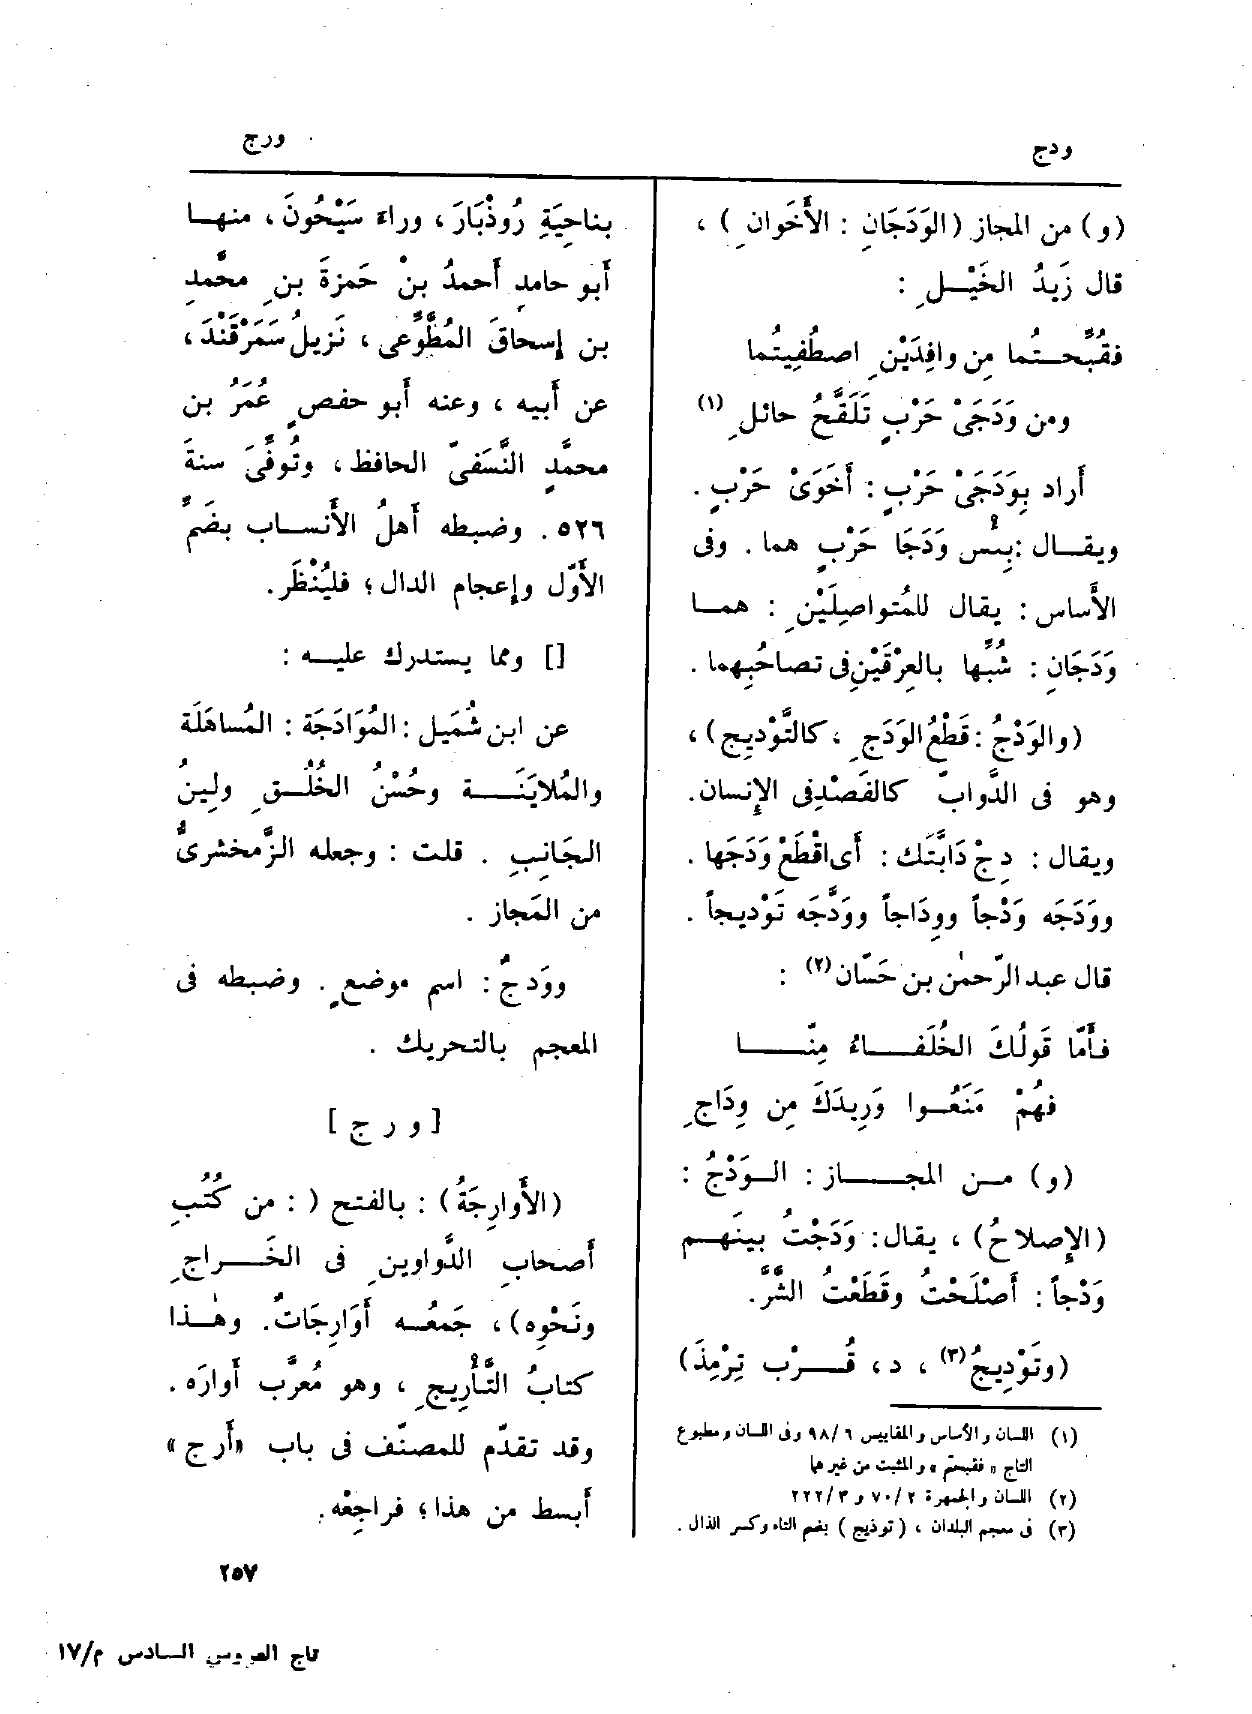 ودج
ورج
(و) من المجاز (الوَدَجَانِ : الأَخَوانِ) ،
قال زَيدُ الخَيْــلِ :
فقُبِّحــتُما مِن وافِدَيْنِ اصطُفِيتُما
ومن وَدَجَىْ حَرْبٍ تَلَقَّحُ حائلِ (١)
أراد بِوَدَجَىْ حَرْبٍ : أَخَوَىْ حَرْبٍ .
ويقــال : بِئْس وَدَجَا حَرْبٍ هما . وفى
الأَساس : يقال للمُتواصِلَيْنِ : همــا
وَدَجَانِ : شُبِّها بالعِرْقَيْنِ فى تصاحُبِهما .
(والوَدْجُ : قَطْعُ الوَدَجِ ، كالتَّوْدِيجِ) ،
وهو فى الدَّوابّ كالفَصْدِ فى الإِنسان.
ويقال : دِجْ دَابَّتَك : أَى اقْطَعْ وَدَجَها .
ووَدَجَه وَدْجاً ووِدَاجاً ووَدَّجَه تَوْديجاً .
قال عبد الرّحمٰن بن حَسَّان (٢) :
فأَمّا قَولُكَ الخُلَفَــاءُ مِنَّــا
فهُمْ مَنَعُــوا وَرِيدَكَ مِن وِدَاجِ
(و) مــن المجــاز : الــوَدْجُ :
(الإِصلاحُ) ، يقال : وَدَجْتُ بينَهــم
وَدْجاً : أَصْلَحْتُ وقَطَعْتُ الشَّرَّ.
(وتَوْدِيجُ (٣) ، د، قُــرْب تِرْمِذَ)
(١) اللسان والأساس والمقاييس ٩٨/٦ وفى اللسان ومطبوع
التاج « فقبحتم » والمثبت من غيرها
(٢) اللسان والجمهرة ٧٠/٢ و ٢٢٢/٣
(٣) فى معجم البلدان ، (توذيج) بضم التاء وكسر الذال .
بناحِيَةِ رُوذْبَارَ ، وراءَ سَيْحُونَ ، منهــا
أَبو حامدٍ أَحمدُ بنْ حَمزةَ بنِ محمَّدِ
بن إِسحاقَ المُطَّوِّعى ، نَزيلُ سَمَرْقَنْدَ ،
عن أَبيه ، وعنه أَبو حفصٍ عُمَرُ بن
محمَّدٍ النَّسَفىّ الحافظ ، وتُوفِّىَ سنةَ
٥٢٦ . وضبطه أَهلُ الأَنســاب بضَمِّ
الأَوّل وإِعجام الدال ؛ فليُنْظَر.
[] ومما يستدرك عليــه :
عن ابن شُمَيل : المُوَادَجَة : المُساهَلَة
والمُلايَنَــة وحُسْنُ الخُلُــقِ ولِينُ
الجَانِبِ . قلت : وجعله الزَّمخشرىُّ
من المَجاز .
ووَدجُ : اسم موضعٍ . وضبطه فى
المعجم بالتحريك .
[ و ر ج ]
(الأَوارِجَةُ) : بالفتح ( : من كُتُبِ
أَصحابِ الدَّواوينِ فى الخَــراجِ
ونَحْوِه) ، جَمعُــه أَوَارِجَاتٌ. وهٰــذا
كتابُ التَّأْرِيجِ ، وهو مُعرَّب أَوارَه .
وقد تقدّم للمصنّف فى باب «أَرج»
أَبسط من هذا ؛ فراجِعْه.
٢٥٧
تاج العروس الســادس م/١٧